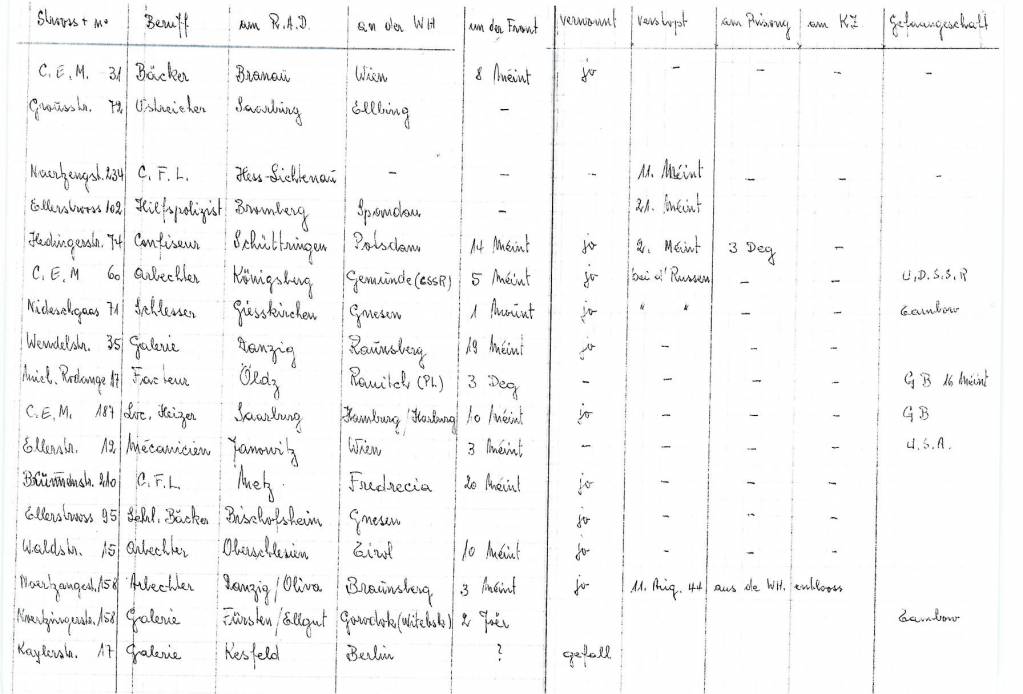 Strooss + No Beruff am R.A.D. an der WH un der Front verwonnt verstopt am Prisong am KZ Gefaangeschaft
C. E. M. 31 Bäcker Branau Wien 8 Méint jo - - - -
Groússtr. 72 Ustreicher Saarburg Ellbing -
Noertzengst. 234 C. F. L. Hess-Lichtenau - - - 11. Méint - - -
Ellerstrooss 102 Hilfspolizist Bromberg Spandau - 21. Méint
Hedingerstr. 74 Confiseur Schüttringen Potsdam 14 Méint jo 2. Méint 3 Deg -
C. E. M 60 Arbechter Königsberg Gemünde (CSSR) 5 Méint jo bei d' Russen - - U.D.S.S.R
Nideschgaas 71 Schlesser Giesskirchen Gnesen 1 Mount jo " " - - Tambow
Wendelstr. 35 Galerie Danzig Raunsberg 19 Méint jo - - -
Niel. Rodange 17 Facteur Öldz Rawitch (PL) 3 Deg - - - - GB 16 Méint
C. E. M. 187 Loc. Heizer Saarburg Hamburg/Harburg 10 Méint jo - - - GB
Ellerstr. 12 Mécanicien Janowitz Wien 3 Méint - - - - U.S.A.
210 C. F. L Metz Fredrecia 20 Méint jo - - -
Ellerstrooss 95 Lehrl. Bäcker Bischofsheim Gnesen jo - - -
Waldstr. 15 Arbechter Oberschlesien Tirol 10 Méint jo - - -
Noertzangest. 158 Arbechter Danzig/Oliva Braunsberg 3 Méint jo 11. Aug. 44 aus de WH. entlooss
Noertzingerstr. 158 Galerie Fürsten/Ellgut Gorodok (Witebsk) 2 Joër Tambow
Kaylerstr. 17 Galerie Kesfeld Berlin ? gefall